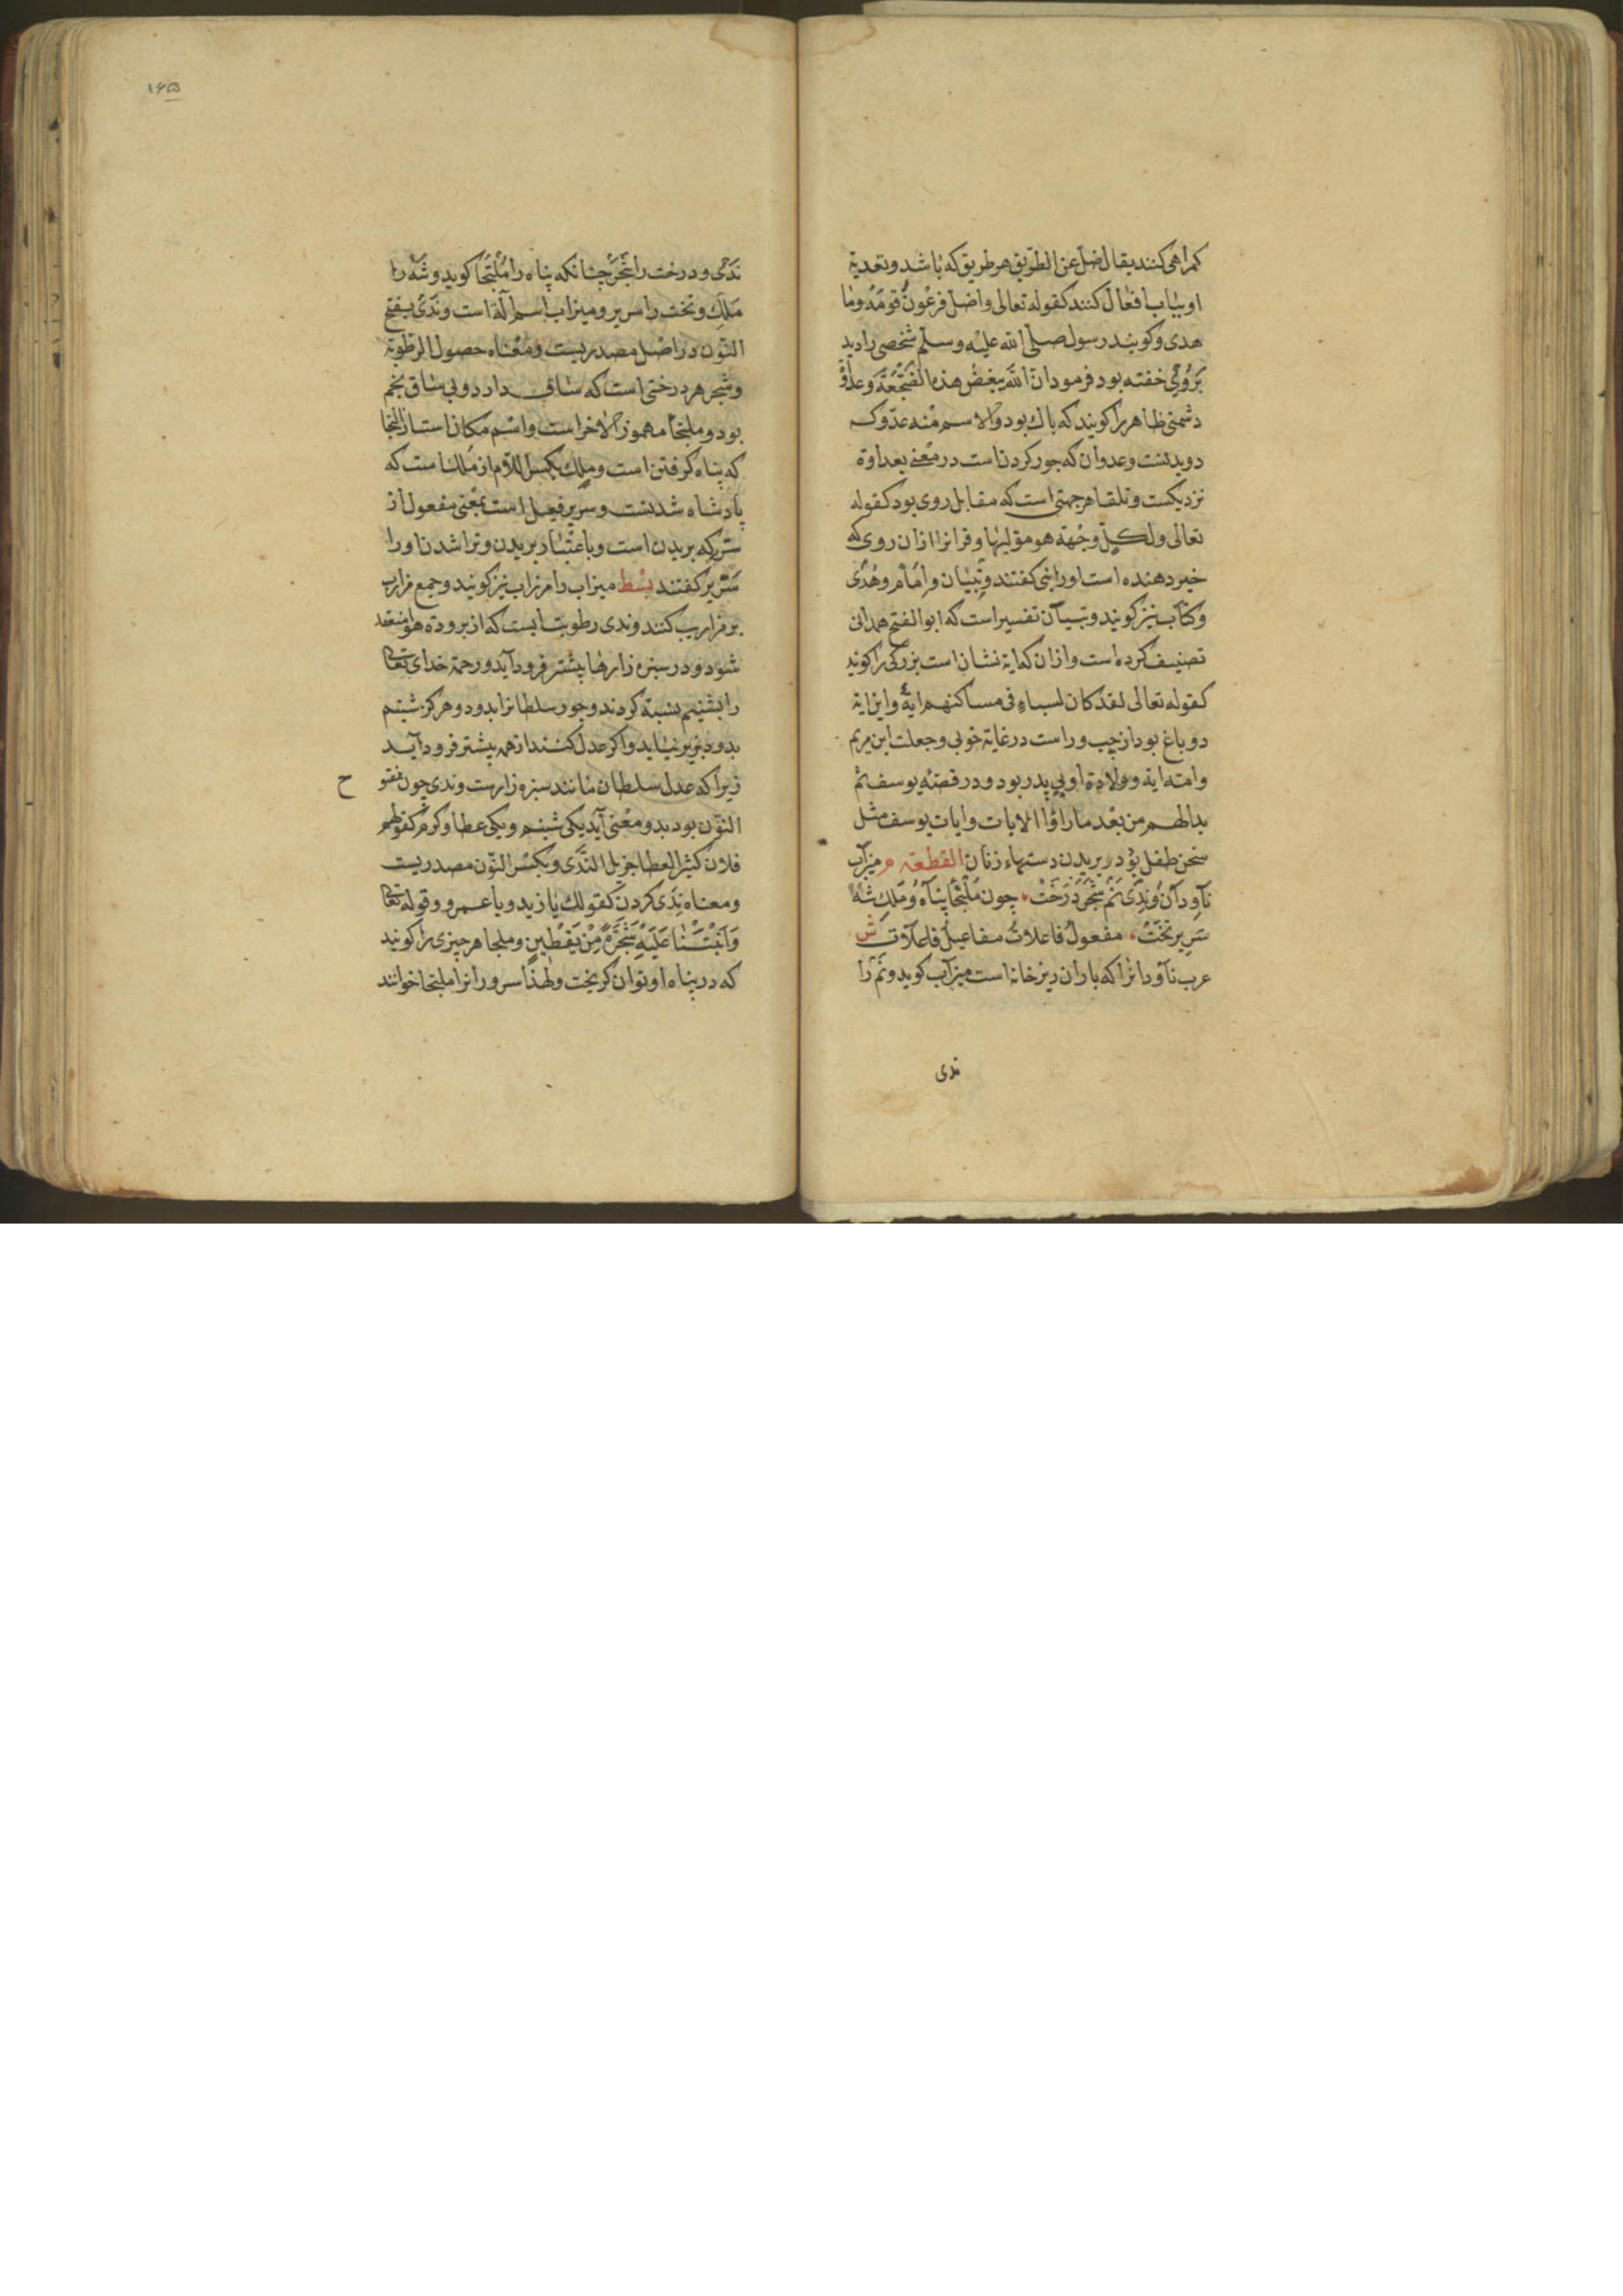 کمراهی کنند یقال ضل عن الطریق هر طریق که باشد و تعدیة
او بباب افعال کنند کقوله تعالی واضل فرعون قومه وما
هدی و کویند رسول صلی الله علیه وسلم شخصی را دید
بر روی خفته بود فرمود ان الله یبغض هذه الضجعة و عدو
دشمنی ظاهر را کویند که باك بود والاسم منه عدو که
دویدنست وعدوان که جور کردن است در معنی بعداوة
نزدیکست و تلقا هر جهتی است که مقابل روی بود کقوله
تعالی ولکل وجهة هو مولیها و قرانرا ازان روی که
خبر دهنده است او را نبی کفتند و تبیان وامام وهدی
وکتاب نیز کویند و تبیان تفسیر است که ابو الفتح همدانی
تصنیف کرده است وازان که ایة نشان است بزرکی را کویند
کقوله تعالی لقد کان لسباء فی مساکنهم ایة و این ایة
دو باغ بود از چپ و راست در غایة خوبی وجعلت ابن مریم
وامته ایة و ولادة او بی پدر بود و در قصه یوسف ثم
بدالهم من بعد ما راؤا الایات وایات یوسف مثل
سخن طفل بود در بریدن دستهاء زنان القطعة م میزاب
ناودان و ندی نم شجر درخت چون ملتجأ پناه و ملك شه
سریر تخت مفعول فاعلات مفاعیل فاعلات ش
عرب ناودانرا که باران ریز خانه است میزاب کوید و نم را
ندی
۱۶۵
ندی و درخت را شجر چنانکه پناه را ملتجا کوید و شه را
ملك و تخت را سریر و میزاب اسم آلة است و ندی بفتح
النون در اصل مصدریست و معناه حصول الرطوبة
و شجر هر درختی است که ساق دارد و بی ساق نجم
بود و ملتجأ مهموز الاخر است و اسم مکان است از التجا
که پناه کرفتن است و ملك بکسر اللام از ملك است که
پادشاه شدنست و سریر فعیل است بمعنی مفعول از
سر که بریدن است و باعتبار بریدن و تراشدن او را
سریر کفتند بسط میزاب را مرزاب نیز کویند و جمع مزاب
بر مزاریب کنند و ندی رطوبتیست که از برودة هوا منعقد
شود و در سبزه زارها بیشتر فرود آید و رحمة خدای تعالی
را بشبنم نسبة کردند و جور سلطانرا بدود و هرکز شبنم
بدود نزیر نیاید و اکر عدل کنند از همه بیشتر فرود آید
زیرا که عدل سلطان مانند سبزه زارست و ندی چون مفتو ح
النون بود بدو معنی آید یکی شبنم و یکی عطا و کرم کقولهم
فلان کثیر العطا جزیل الندی و بکسر النون مصدریست
و معناه ندی کردن کقولك یا زید و یا عمرو و قوله تعالی
وانبتنا علیه شجرة من یقطین و ملجا هر چیزی را کویند
که در پناه او توان کریخت ولهذا سرورانرا ملتجا خوانند